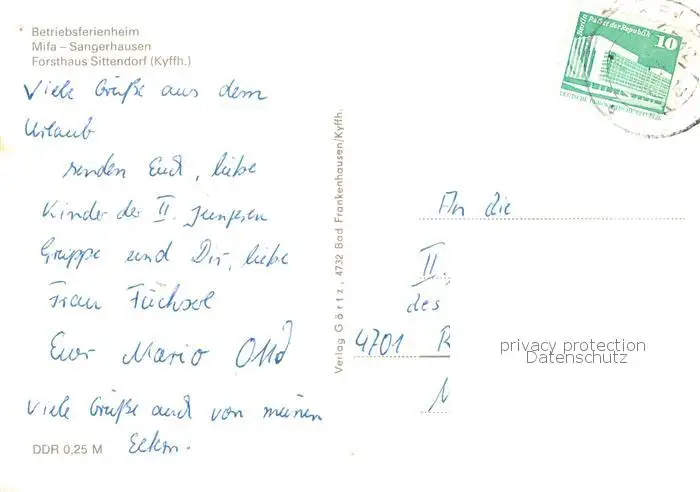 Betriebsferienheim
Mifa – Sangerhausen
Forsthaus Sittendorf (Kyffh.)
Viele Grüße aus dem
Urlaub
senden Euch, liebe
Kinder der II. jüngeren
Gruppe und Dir, liebe
Frau Füchsel
Euer Mario Otto
Viele Grüße auch von meinen
Eltern.
DDR 0,25 M
Verlag Görtz, 4732 Bad Frankenhausen/Kyffh.
Berlin Palast der Republik
10
DEUTSCHE DEMOKRATISCHE REPUBLIK
An die
II.
des
4701 R
privacy protection
Datenschutz